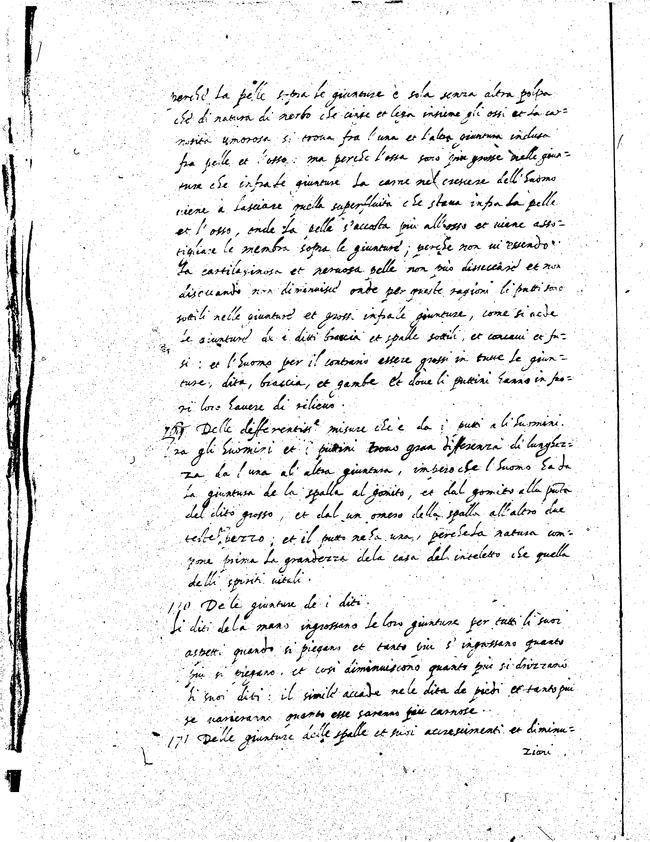 perche La pelle sopra le giunture è sola senza altra polpa
che di natura di nerbo che cinse et lega insieme gli ossi et la car=
nosità umorosa si troua fra l'una et l'altra giuntura inclusa
fra pelle et l'osso: ma perche l'ossa sono piu grosse nelle giun=
ture che infra le giunture La carne nel crescere dell'huomo
uiene à lasciare quella superfluità che staua infra la pelle
et l'osso, onde La pelle s'accosta piu all'osso et uiene asso=
tigliare le membra sopra le giunture; perche non ui essendo
La cartilaginosa et neruosa pelle non può disseccare et non
diseccando non diminuisce onde per queste ragioni li putti sono
sottili nelle giunture et grossi infra le giunture, come si uede
le giunture de i diti braccia et spalle sottili, et concaui et fu=
si: et l'huomo per il contrario essere grossi in tutte le giun=
ture, dita, braccia, et gambe et doue li puttini hanno in fuo=
ri loro hauere di rilieuo.
Delle differentie misure che è da i putti a li huomini.
ra gli huomini et i puttini trouo gran differenza di lunghez=
za da l'una al'altra giuntura, imperoche l'huomo ha da
La giuntura de la spalla al gomito, et dal gomito alla punta
del dito grosso, et dal un omero della spalla all'altro due
teste pezzo, et il putto ne ha una, perche la natura com=
pone prima La grandezza dela casa del inteletto che quella
delli spiriti uitali.
170 Dele giunture de i diti.
Li diti dela mano ingrossano Le loro giunture per tutti li suoi
aspetti quando si piegano et tanto piu s'ingrossano quanto
piu si piegano. et cosi diminuiscono quanto piu si drizzano
li suoi diti: il simile accade nele dita de piedi et tanto piu
se uarieranno quanto esse saranno piu carnose.
171 Delle giunture delle spalle et suoi accrescimenti et diminu=
zioni